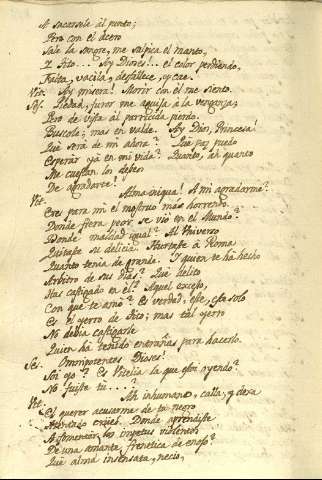 A sacarsele al punto;
Pero con el acero
Sale la sangre, me salpica el manto,
Y Tito... Ay Dioses!.. el color perdiendo,
Falta, vacila, desfallece, y cae.
Vit. Ay misera! Morir con el me siento.
Ses. Piedad, furor me aguija à la venganza;
Pero de vista al parricida pierdo.
Buscole; mas en valde. Ay Dios, Princesa!
Que serà de mi ahora? Que paz puedo
Esperar yà en mi vida? Quanto, ah quanto
Me cuestan los deseos
De agradarte?
Vit. Alma iniqua! A mi agradarme?
Eres para mi el mostruo más horrendo.
Donde fiera peor se viò en el Mundo?
Donde maldad igual? Al Universo
Quitaste su delicia. Hurtaste à Roma
Quanto tenia de grande. Y quien te ha hecho
Arbitro de sus dias? Què delito
Has castigado en èl? Aquel exceso,
Con que te amò? Es verdad, este, este solo
Es el yerro de Tito; mas tal yerro
No debia castigarle
Quien ha tenido entrañas para hacerlo.
Ses. Omnipotentes Dioses!
Soi yo? Es Vitelia la que estoi oyendo?
No fuiste tù....?
Vit. Ah inhumano, calla, y dexa
El querer acusarme de tu negro
Atentado cruel. Donde aprendiste
A fomentar los impetus violentos
De una amante frenetica de enojo?
Què alma insensata, necio,